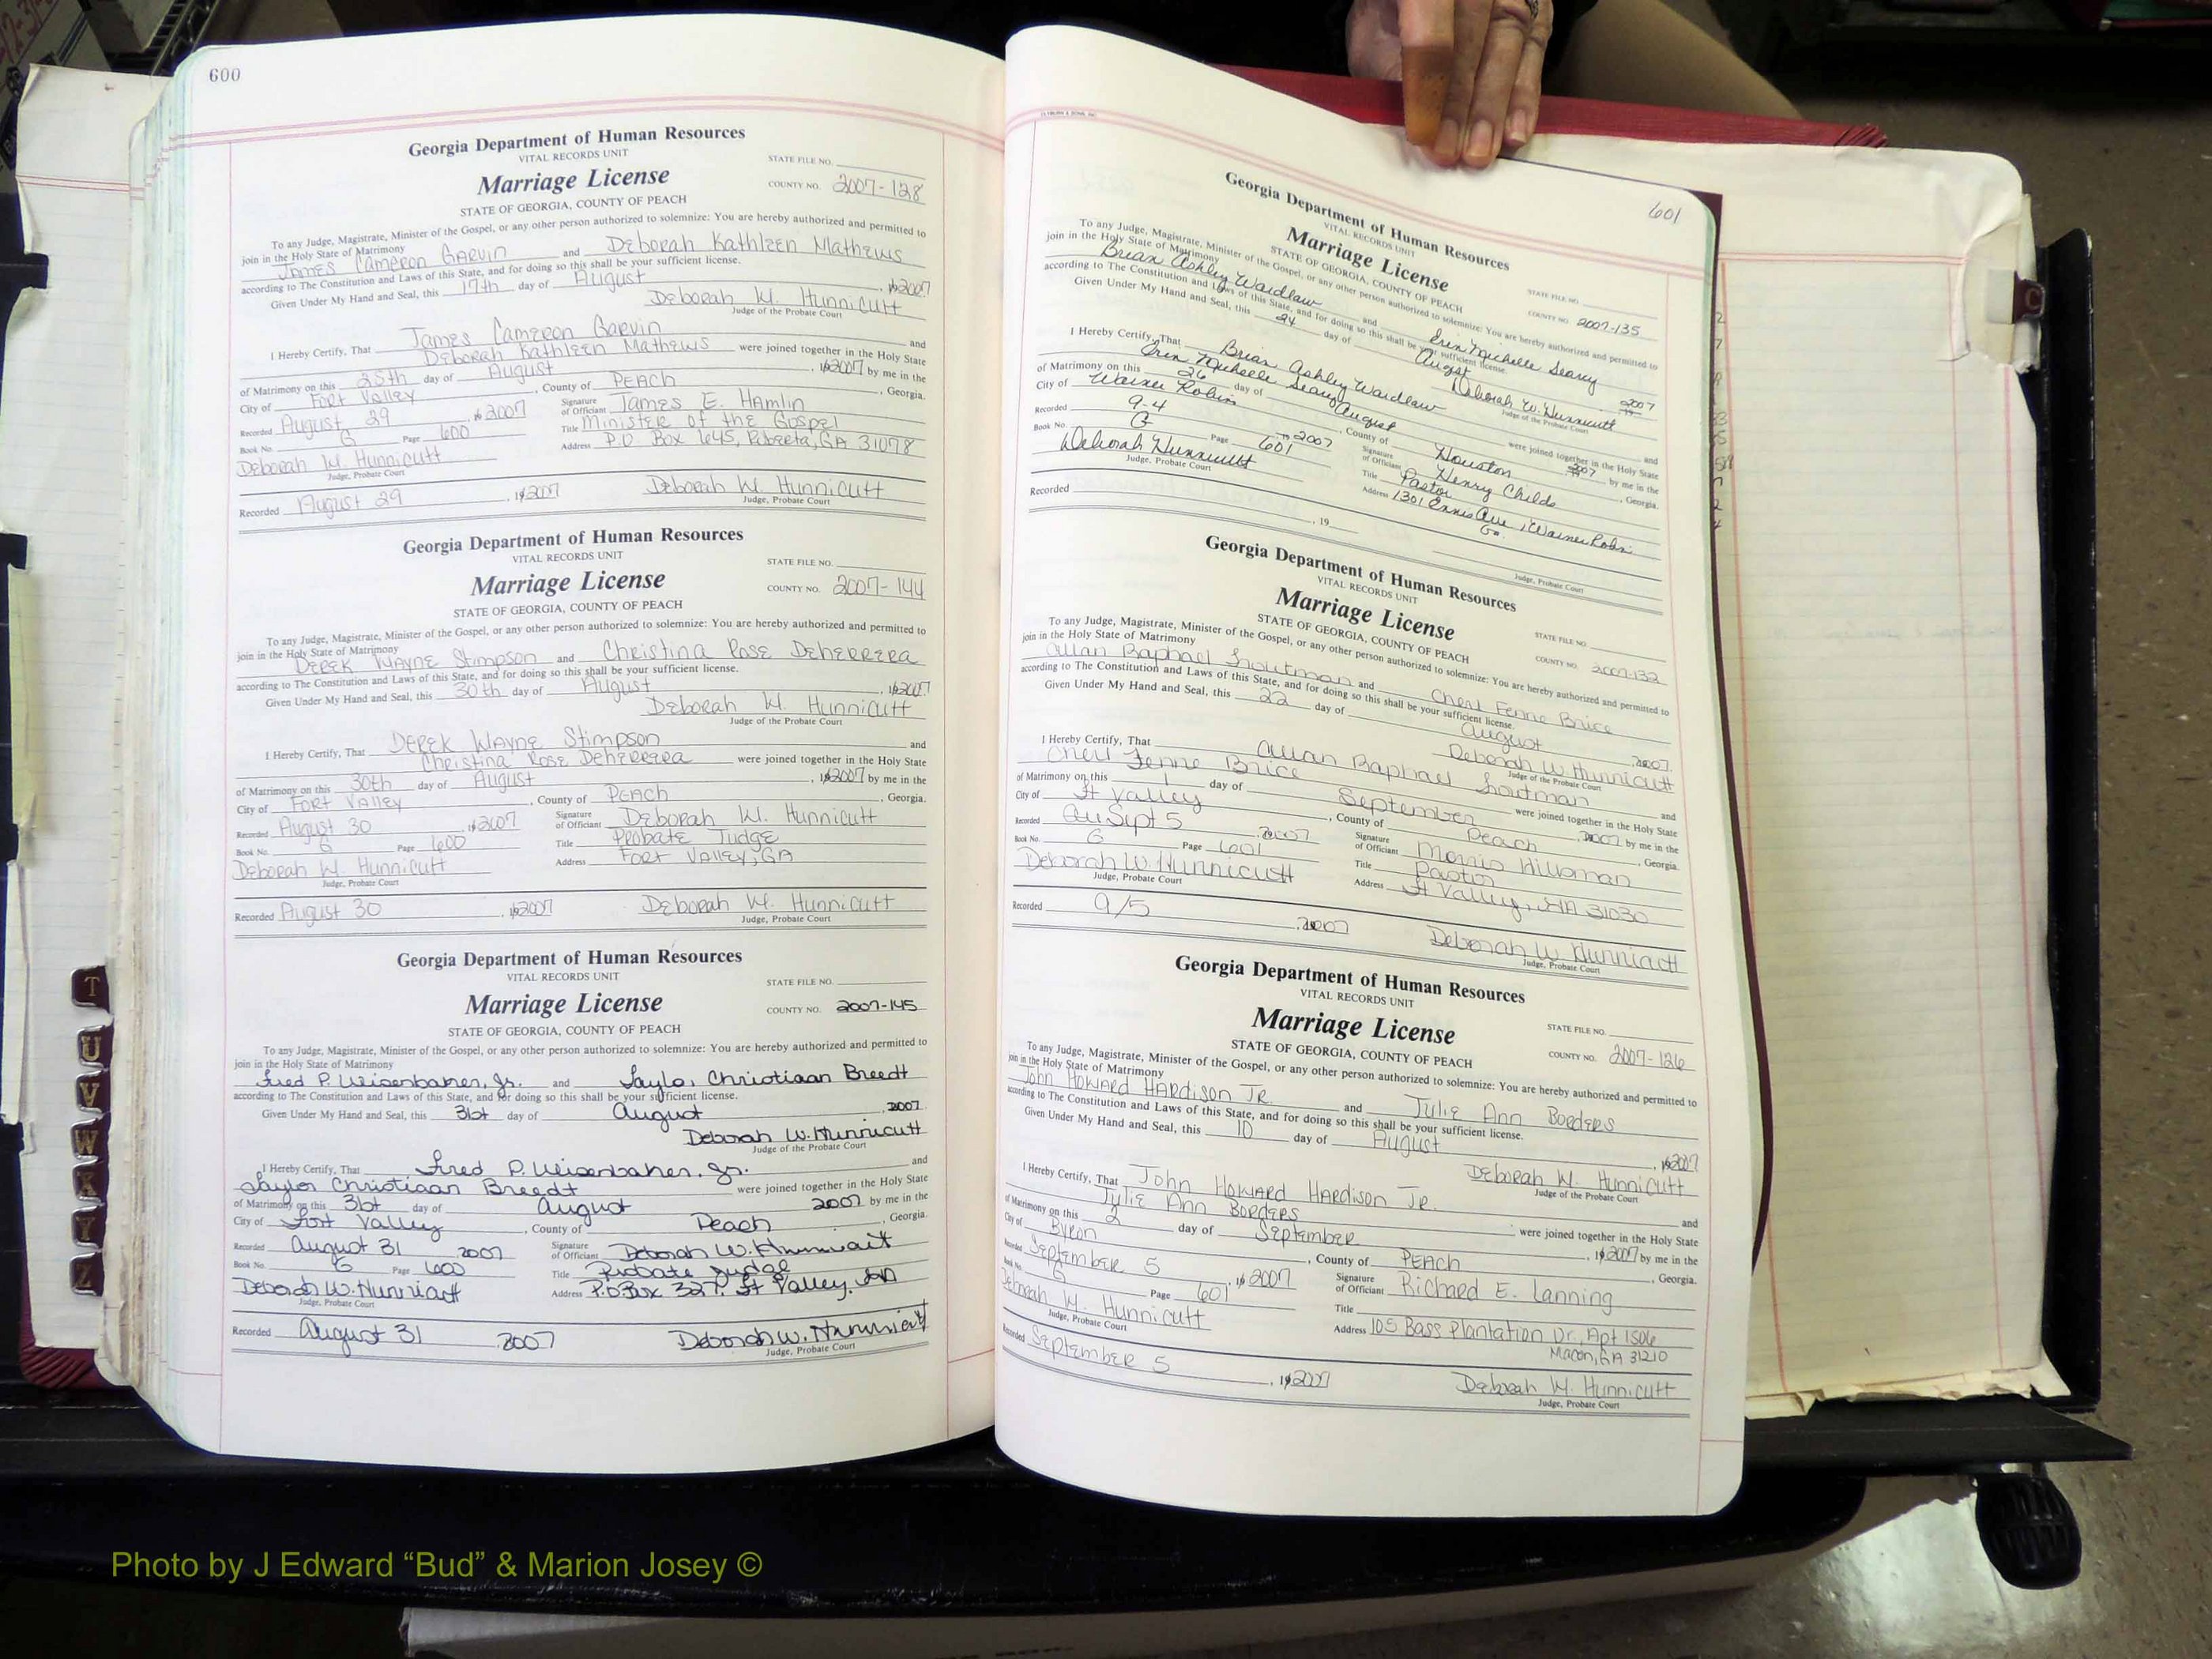 600
Georgia Department of Human Resources
VITAL RECORDS UNIT
STATE FILE NO.
Marriage License
COUNTY NO. 2007-128
STATE OF GEORGIA, COUNTY OF PEACH
To any Judge, Magistrate, Minister of the Gospel, or any other person authorized to solemnize: You are hereby authorized and permitted to
join in the Holy State of Matrimony
James Cameron Garvin and Deborah Kathleen Mathews
according to The Constitution and Laws of this State, and for doing so this shall be your sufficient license.
Given Under My Hand and Seal, this 17th day of August, 2007
Deborah W. Hunnicutt
Judge of the Probate Court
I Hereby Certify, That James Cameron Garvin and
Deborah Kathleen Mathews were joined together in the Holy State
of Matrimony on this 25th day of August, 2007 by me in the
City of Fort Valley, County of PEACH, Georgia.
Recorded August 29, 2007 Signature of Officiant James E. Hamlin
Book No. G Page 600 Title Minister of the Gospel
Deborah W. Hunnicutt Address P.O Box 645, Roberta, GA 31078
Judge, Probate Court
Recorded August 29, 2007 Deborah W. Hunnicutt
Judge, Probate Court
Georgia Department of Human Resources
VITAL RECORDS UNIT
STATE FILE NO.
Marriage License
COUNTY NO. 2007-144
STATE OF GEORGIA, COUNTY OF PEACH
To any Judge, Magistrate, Minister of the Gospel, or any other person authorized to solemnize: You are hereby authorized and permitted to
join in the Holy State of Matrimony
Derek Wayne Stimpson and Christina Rose Deherrera
according to The Constitution and Laws of this State, and for doing so this shall be your sufficient license.
Given Under My Hand and Seal, this 30th day of August, 2007
Deborah W. Hunnicutt
Judge of the Probate Court
I Hereby Certify, That Derek Wayne Stimpson and
Christina Rose Deherrera were joined together in the Holy State
of Matrimony on this 30th day of August, 2007 by me in the
City of Fort Valley, County of Peach, Georgia.
Recorded August 30, 2007 Signature of Officiant Deborah W. Hunnicutt
Book No. G Page 600 Title Probate Judge
Deborah W. Hunnicutt Address Fort Valley, GA
Judge, Probate Court
Recorded August 30, 2007 Deborah W. Hunnicutt
Judge, Probate Court
Georgia Department of Human Resources
VITAL RECORDS UNIT
STATE FILE NO.
Marriage License
COUNTY NO. 2007-145
STATE OF GEORGIA, COUNTY OF PEACH
To any Judge, Magistrate, Minister of the Gospel, or any other person authorized to solemnize: You are hereby authorized and permitted to
join in the Holy State of Matrimony
Fred P. Weisenbaker, Jr. and Saylor Christiaan Breedt
according to The Constitution and Laws of this State, and for doing so this shall be your sufficient license.
Given Under My Hand and Seal, this 31st day of August, 2007
Deborah W. Hunnicutt
Judge of the Probate Court
I Hereby Certify, That Fred P. Weisenbaker, Jr. and
Saylor Christiaan Breedt were joined together in the Holy State
of Matrimony on this 31st day of August 2007 by me in the
City of Fort Valley, County of Peach, Georgia.
Recorded August 31 2007 Signature of Officiant Deborah W. Hunnicutt
Book No. G Page 600 Title Probate Judge
Deborah W. Hunnicutt Address P.O. Box 327, Ft Valley, GA
Judge, Probate Court
Recorded August 31 2007 Deborah W. Hunnicutt
Judge, Probate Court
601
Georgia Department of Human Resources
VITAL RECORDS UNIT
Marriage License
STATE FILE NO.
STATE OF GEORGIA, COUNTY OF PEACH
COUNTY NO. 2007-135
To any Judge, Magistrate, Minister of the Gospel, or any other person authorized to solemnize: You are hereby authorized and permitted to
join in the Holy State of Matrimony
Brian Ashley Waidlaw and Erin Michelle Searcy
according to The Constitution and Laws of this State, and for doing so this shall be your sufficient license.
Given Under My Hand and Seal, this 24 day of August 2007
Deborah W. Hunnicutt
Judge of the Probate Court
I Hereby Certify, That Brian Ashley Waidlaw and
Erin Michelle Searcy were joined together in the Holy State
of Matrimony on this 26 day of August 2007 by me in the
City of Warner Robins, County of Houston, Georgia.
Recorded 9-4 2007 Signature of Officiant Henry Childs
Book No. G Page 601 Title Pastor
Deborah Hunnicutt Address 1301 Ennis Ave, Warner Robin
Ga.
Judge, Probate Court
Recorded , 19
Judge, Probate Court
Georgia Department of Human Resources
VITAL RECORDS UNIT
Marriage License
STATE FILE NO.
STATE OF GEORGIA, COUNTY OF PEACH
COUNTY NO. 2007-132
To any Judge, Magistrate, Minister of the Gospel, or any other person authorized to solemnize: You are hereby authorized and permitted to
join in the Holy State of Matrimony
Allan Raphael Troutman and Cheri Fenne Brice
according to The Constitution and Laws of this State, and for doing so this shall be your sufficient license.
Given Under My Hand and Seal, this 22 day of August, 2007
Deborah W Hunnicutt
Judge of the Probate Court
I Hereby Certify, That Allan Raphael Troutman and
Cheri Fenne Brice were joined together in the Holy State
of Matrimony on this 1 day of September, 2007 by me in the
City of Ft Valley, County of Peach, Georgia.
Recorded Sept 5, 2007 Signature of Officiant Morris Hillsman
Book No. G Page 601 Title Pastor
Deborah W. Hunnicutt Address Ft Valley, GA 31030
Judge, Probate Court
Recorded 9/5, 2007 Deborah W Hunnicutt
Judge, Probate Court
Georgia Department of Human Resources
VITAL RECORDS UNIT
Marriage License
STATE FILE NO.
STATE OF GEORGIA, COUNTY OF PEACH
COUNTY NO. 2007-126
To any Judge, Magistrate, Minister of the Gospel, or any other person authorized to solemnize: You are hereby authorized and permitted to
join in the Holy State of Matrimony
John Howard Hardison Jr and Julie Ann Borders
according to The Constitution and Laws of this State, and for doing so this shall be your sufficient license.
Given Under My Hand and Seal, this 10 day of August, 2007
Deborah W. Hunnicutt
Judge of the Probate Court
I Hereby Certify, That John Howard Hardison Jr. and
Julie Ann Borders were joined together in the Holy State
of Matrimony on this 2 day of September, 2007 by me in the
City of Byron, County of Peach, Georgia.
Recorded September 5, 2007 Signature of Officiant Richard E. Lanning
Book No. G Page 601 Title
Deborah W. Hunnicutt Address 105 Bass Plantation Dr., Apt 1506
Macon, GA 31210
Judge, Probate Court
Recorded September 5, 2007 Deborah W. Hunnicutt
Judge, Probate Court
T
U
V
W
X
Y
Z
C
Photo by J Edward “Bud” & Marion Josey ©